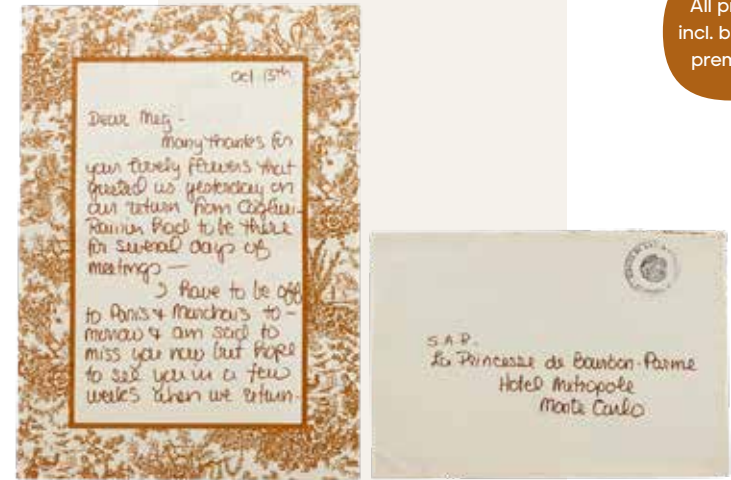 All pr
incl. b
prem
Oct 13th
Dear Meg -
Many thanks for
your lovely flowers that
greeted us yesterday on
our return from Cagliari -
Rainier had to be there
for several days of
meetings —
I have to be off
to Paris & Marchais to-
morrow & am sad to
miss you now but hope
to see you in a few
weeks when we return -
S.A.R.
La Princesse de Bourbon-Parme
Hotel Metropole
Monte Carlo